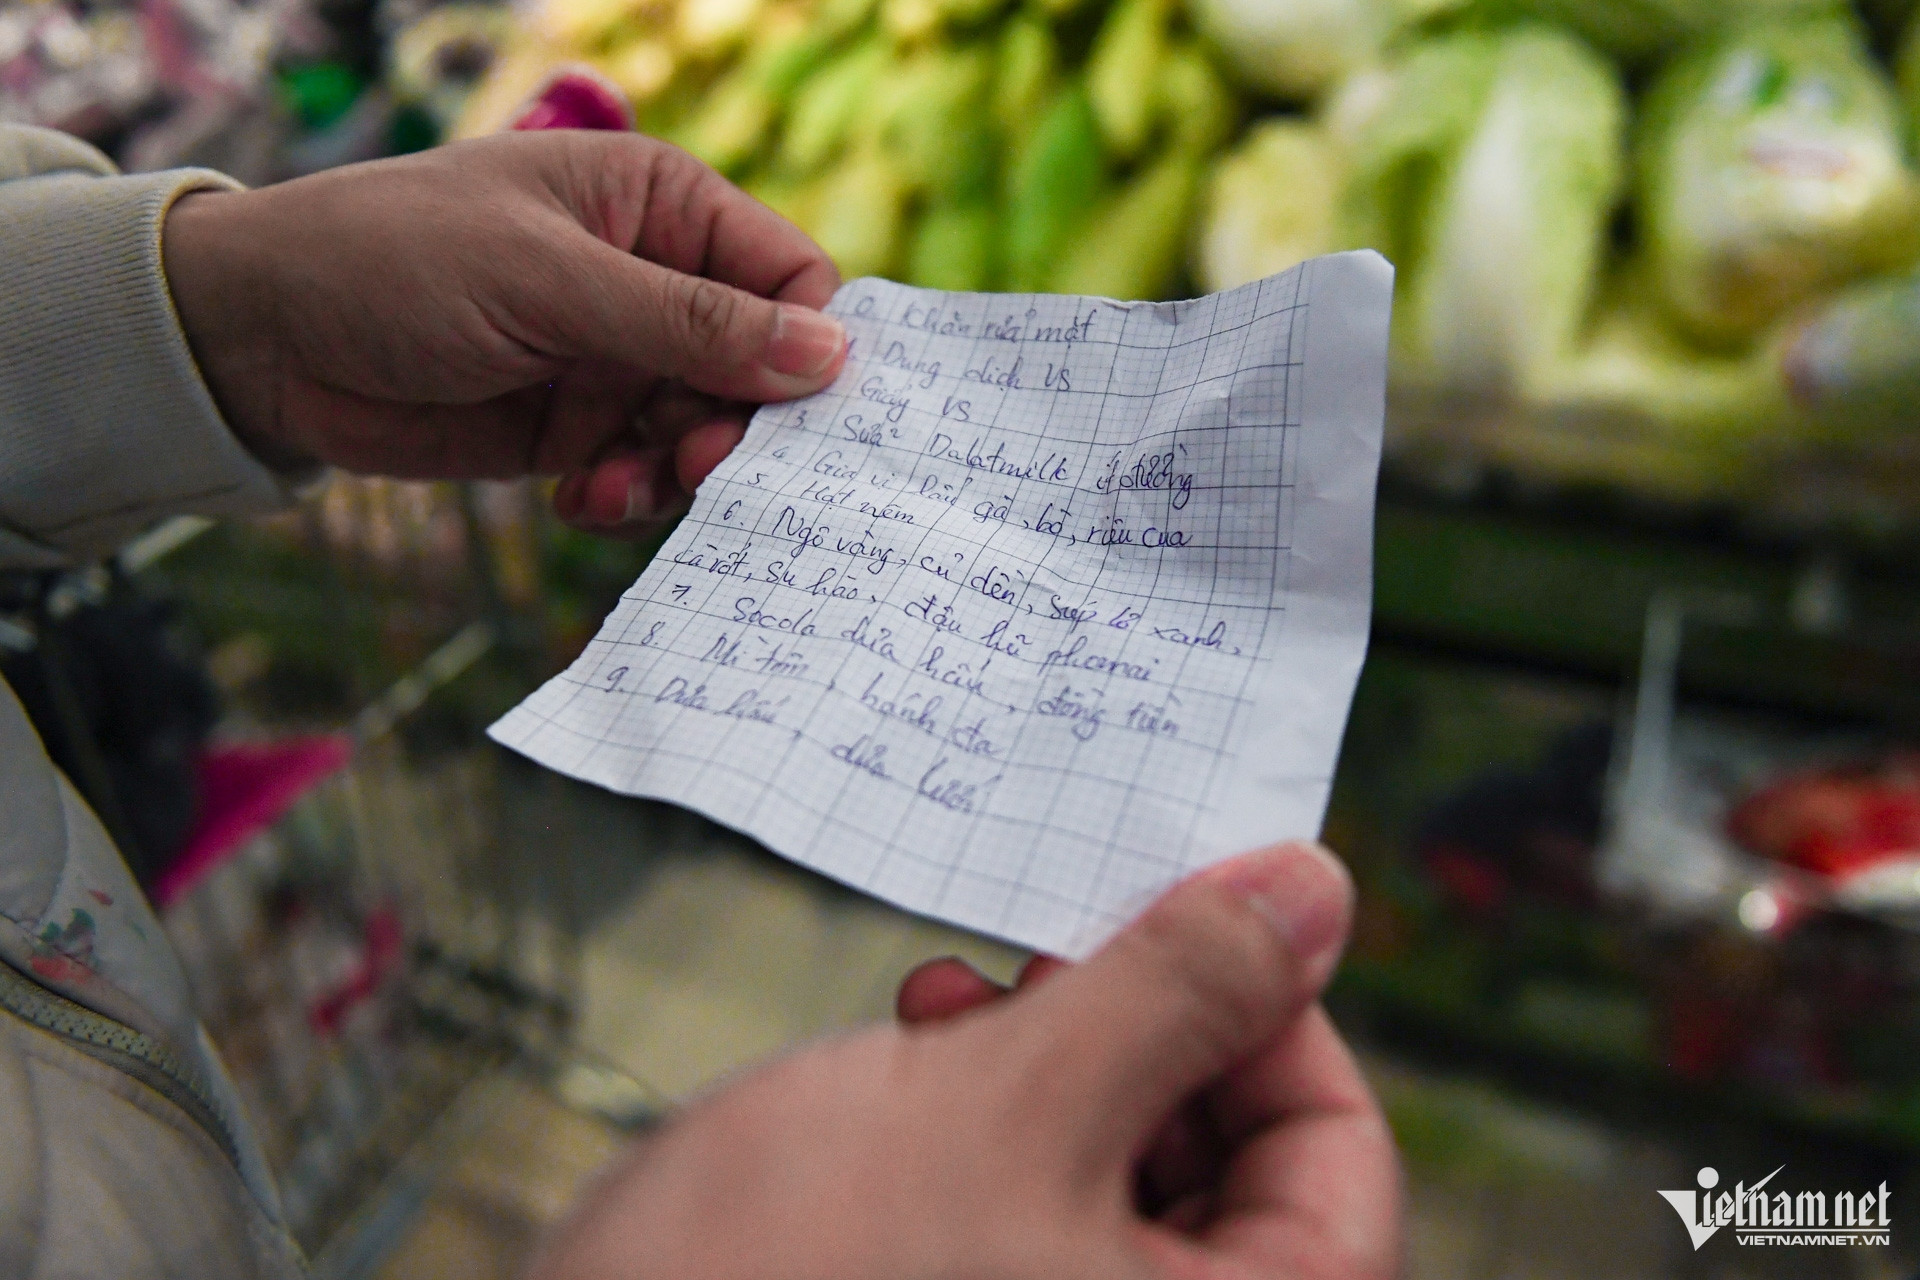 0. Khăn rửa mặt
1. Dung dịch VS
Giấy VS
3. Sữa Dalatmilk ít đường
4. Gia vị lẩu gà, bò, riêu cua
5. Hạt nêm
6. Ngô vàng, củ dền, súp lơ xanh,
cà rốt, su hào, đậu hũ phomai
7. Socola dưa hấu, đồng tiền
8. Mì tôm, bánh đa
9. Dưa hấu, dưa lưới
Vietnamnet
VIETNAMNET.VN